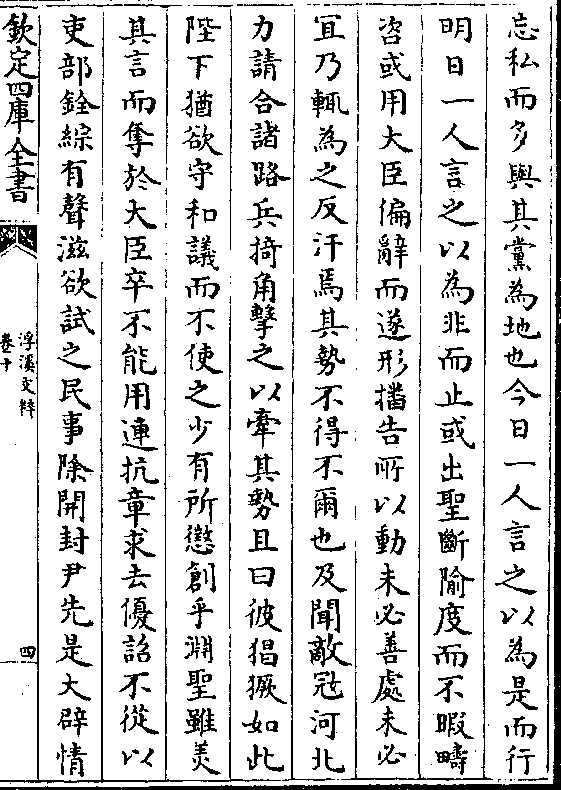 忘私而多與其黨為地也今日一人言之以為是而行
明日一人言之以為非而止或出聖斷隃度而不暇疇
咨或用大臣偏辭而遂形播告所以動未必善處未必
宜乃輒為之反汗焉其勢不得不爾也及聞敵冦河北
力請合諸路兵掎角擊之以牽其勢且曰彼猖獗如此
陛下猶欲守和議而不使之少有所懲創乎淵聖雖美
其言而奪於大臣卒不能用連抗章求去優詔不從以
吏部銓綜有聲滋欲試之民事除開封尹先是大辟情
欽定四庫全書
浮溪文粹
卷十
四